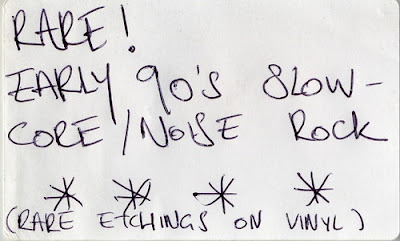 RARE!
EARLY 90'S SLOW-
CORE/NOISE ROCK
* * * *
(RARE ETCHINGS ON VINYL)